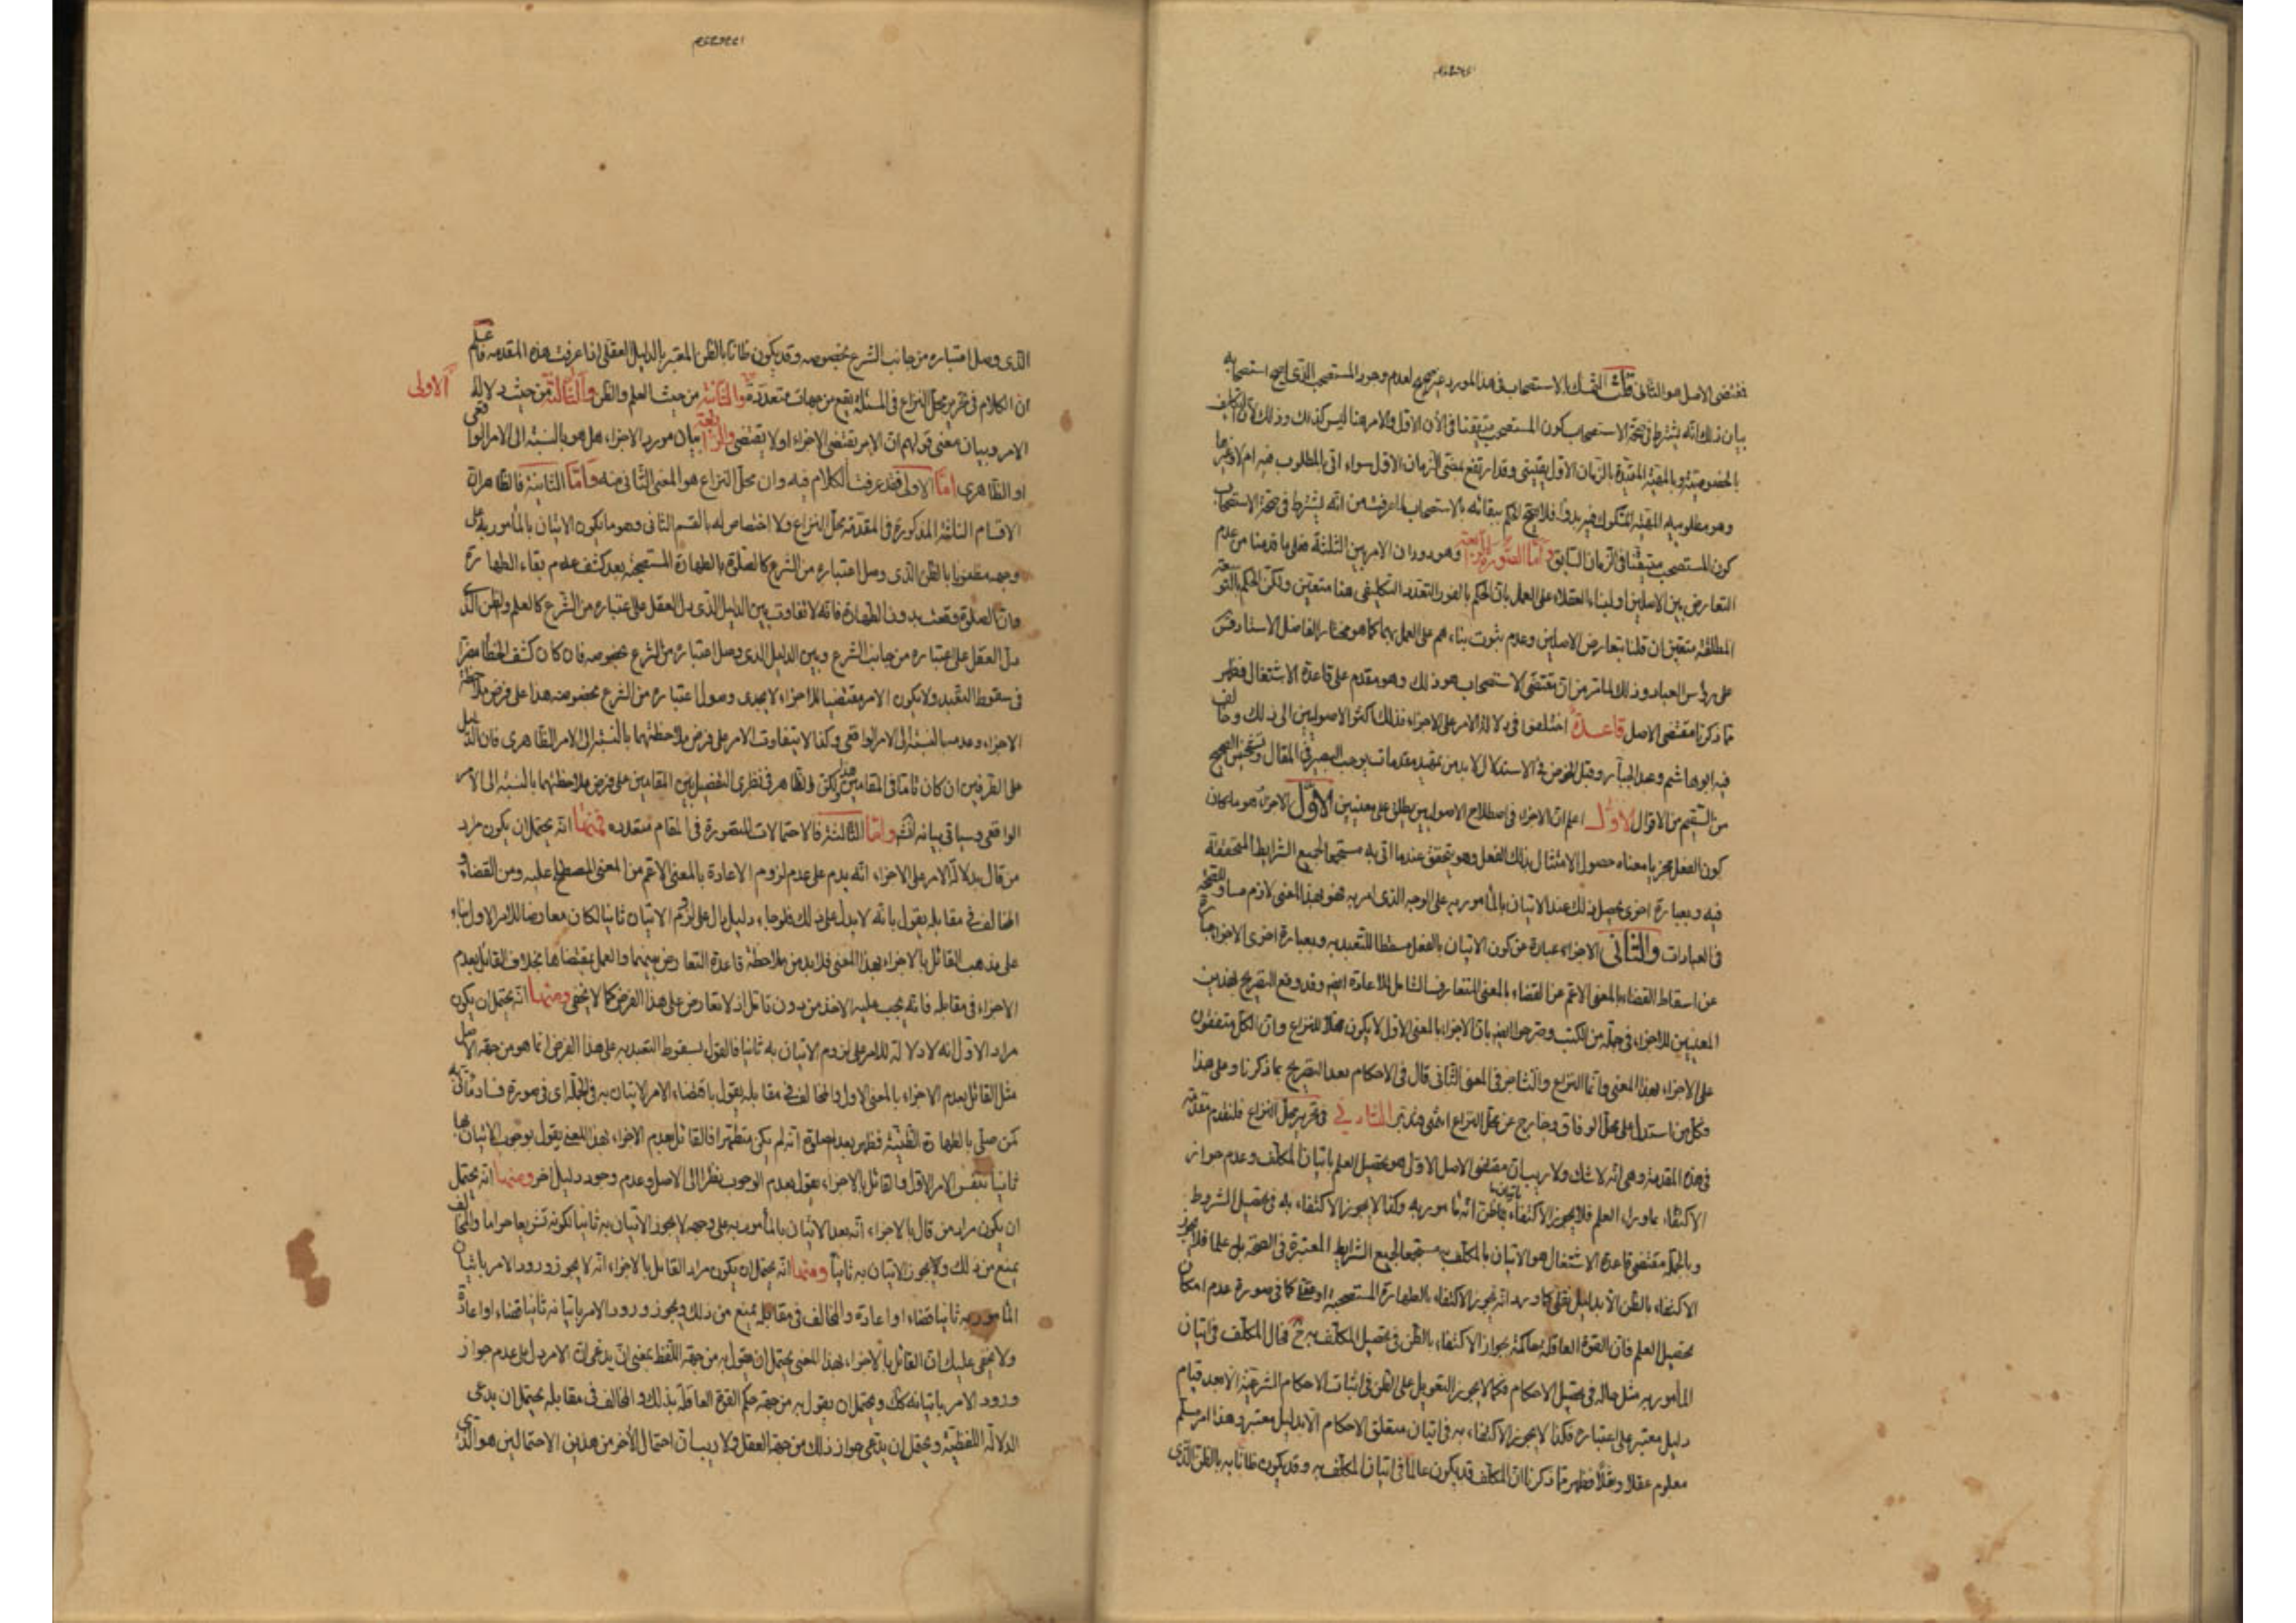 فمقتضى الاصل هو الثانى قلت التمسك بالاستصحاب فى هذا المورد غير صحيح لعدم وجود المستصحب الذى اريد استصحابه
بيان ذلك انه يشترط فى صحة الاستصحاب كون المستصحب متيقنا فى الآن الاول والامر هنا ليس كذلك وذلك لان التكليف
بالخصوصية وبالهيئة المقيدة بالزمان الاول يقينى وقد ارتفع بمضى الزمان الاول سواء اتى بالمطلوب فيه ام لا وغيرها
وهو مطلوبيه الهيئة المشكوك فيه بدوا فلا يصح الحكم ببقائه بالاستصحاب لما عرفت من انه يشترط فى صحة الاستصحاب
كون المستصحب متيقنا فى الزمان السابق واما الصورة الرابعة وهو دوران الامر بين الثلثة فعلى ما قدمنا من عدم
التعارض بين الاصلين او لبناء العقلاء على العمل بان الحكم بالفور التعدد التكليفى هنا متعين ولكن الحكم بالتوسعة
المطلقة متعين ان قلنا بتعارض الاصلين وعدم ثبوت بناء هم على العمل بهما كما هو مختار الفاضل الاستاد
على رؤس العباد وذلك لما مر من ان مقتضى الاستصحاب هو ذلك وهو مقدم على قاعدة الاشتغال فظهر
مما ذكرنا مقتضى الاصل قاعدة اختلفوا فى دلالة الامر على الاجزاء فذلك اكثر الاصوليين الى ذلك وخالف
فيه ابو هاشم وعبد الجبار وقبل الخوض فى الاستدلال لا بد من تمهيد مقدمات يوجب البصيرة فى المقال وتشخيص الصحيح
من السقيم من الاقوال الاولى اعلم ان الاجزاء فى اصطلاح الاصوليين يطلق على معنيين الاول الاجزاء هو ما كان
كون الفعل مجزيا معناه حصول الامتثال بذلك الفعل وهو يتحقق عندما اتى به مستجمعا لجميع الشرايط المتحققة
فيه وبعبارة اخرى يحصل ذلك عند الاتيان بالمأمور به على الوجه الذى امر به فهو بهذا المعنى لازم مساو للصحة
فى العبادات والثانى الاجزاء عبارة عن كون الاتيان بالفعل مسقطا للتعبد به وبعبارة اخرى الاجزاء عبارة
عن اسقاط القضاء بالمعنى الاعم عن القضاء بالمعنى المتعارف الشامل للاعادة ايضا وقد وقع التصريح بهذين
المعنيين للاجزاء فى جملة من الكتب وصرحوا ايضا بان الاجزاء بالمعنى الاول لا يكون محلا للنزاع وان الكل متفقون
على الاجزاء بهذا المعنى وانما النزاع والتشاجر فى المعنى الثانى قال فى الاحكام بعد التصريح بما ذكرنا وعلى هذا
فكل من استدل على محل الوفاق فخارج عن محل النزاع انتهى فتدبر الثانية فى تحرير محل النزاع فلنقدم مقدمة
فى هذه المقدمة وهى انه لا شك ولا ريب ان مقتضى الاصل الاول هو تحصيل العلم باتيان المكلف وعدم جواز
الاكتفاء بما وراء العلم فلا يجوز الاكتفاء باتيان ما ظن انه مأمور به وكذا لا يجوز الاكتفاء به فى تحصيل الشروط
وبالجملة مقتضى قاعدة الاشتغال هو الاتيان بالمكلف به مستجمعا لجميع الشرايط المعتبرة فى الصحة بل علما فلا يجوز
الاكتفاء بالظن الا بدليل نقلى كما ورد انه يجوز الاكتفاء بالطهارة المستصحبة او عقلى كما فى صورة عدم امكان
تحصيل العلم فان القوة العاقلة حاكمة بجواز الاكتفاء بالظن فى تحصيل المكلف به ح فحال المكلف فى اتيان
المأمور به مثل حاله فى تحصيل الاحكام فكما لا يجوز التعويل على الظن فى اثبات الاحكام الشرعية الا بعد قيام
دليل معتبر على اعتباره فكذا لا يجوز الاكتفاء به فى اتيان متعلق الاحكام الا بدليل معتبر وهذا امر مسلم
معلوم عقلا ونقلا فظهر مما ذكرنا ان المكلف قد يكون عالما فى اتيان المكلف به وقد يكون ظانا به بالظن الذى
الذى وصل اعتباره من جانب الشرع بخصوصه وقد يكون ظانا بالظن المعتبر بالدليل العقلى اذا عرفت هذه المقدمة فاعلم
ان الكلام فى تحرير محل النزاع فى المسئلة يقع من جهات متعددة الاولى والثانية من حيث العلم والظن والثالثة من حيث دلالة
الامر وبيان معنى قولهم ان الامر يقتضى الاجزاء او لا يقتضى والرابعة بيان مورد الاجزاء هل هو بالنسبة الى الامر الواقعى
او الظاهرى اما الاولى فقد عرفت الكلام فيه وان محل النزاع هو المعنى الثانى منه واما الثانية فالظاهر ان
الاقسام الثلثة المذكورة فى المقدمة محل النزاع ولا اختصاص له بالقسم الثانى وهو ما يكون الاتيان بالمأمور به على
وجهه مظنونا بالظن الذى وصل اعتباره من الشرع كالصلوة بالطهارة المستصحبة بعد كشف عدم بقاء الطهارة
وان الصلوة وقعت بدون الطهارة فانه لا تفاوت بين الدليل الذى دل العقل على اعتباره من الشرع كالعلم والظن الذى
دل العقل على اعتباره من جانب الشرع وبين الدليل الذى وصل اعتباره من الشرع بخصوصه فان كان كشف الخطأ مضرا
فى سقوط التعبد ولا يكون الامر مقتضيا للاجزاء لا يجدى وصول اعتباره من الشرع بخصوصه هذا على فرض ملاحظة
الاجزاء وعدمه بالنسبة الى الامر الواقعى وكذا لا يتفاوت الامر على فرض ملاحظتهما بالنسبة الى الامر الظاهرى فان الدليل
على الطرفين ان كان تاما فى المقامين هذا ولكن الظاهر فى نظرى التفصيل بين المقامين على فرض ملاحظتهما بالنسبة الى الامر
الواقعى وسياتى بيانه واما الثالثة فالاحتمالات المتصورة فى المقام متعددة فمنها انه يحتمل ان يكون مراد
من قال بدلالة الامر على الاجزاء انه يدم على عدم لزوم الاعادة بالمعنى الاعم من المعنى المصطلح عليه ومن القضاء و
المخالف فى مقابله يقول بانه لا يدل على ذلك فلو جاء دليل دال على لزوم الاتيان ثانيا لكان معارضا للامر الاول بناء
على مذهب القائل بالاجزاء بهذا المعنى فلا بد من ملاحظة قاعدة التعارض بينهما والعمل بمقتضاها بخلاف القائل بعدم
الاجزاء فى مقابله فانه يجب عليه الاخذ من دون تامل اذ لا تعارض على هذا الفرض كما لا يخفى ومنها انه يحتمل ان يكون
مراد الاول انه لا دلالة للامر على لزوم الاتيان به ثانيا فالقول بسقوط التعبد به على هذا الفرض انما هو من جهة الاصل
مثل القائل بعدم الاجزاء بالمعنى الاول والمخالف فى مقابله يقول باقتضاء الامر لاتيان به فى الجملة اى فى صورة فساد ما اتى به
كمن صلى بالطهارة الظنية فظهر بعد الصلوة انه لم يكن متطهرا فالقائل بعدم الاجزاء بهذا المعنى يقول بوجوب الاتيان بها
ثانيا بنفس الامر الاول والقائل بالاجزاء يقول بعدم الوجوب نظرا الى الاصل وعدم وجود دليل اخر ومنها انه يحتمل
ان يكون مراد من قال بالاجزاء انه بعد الاتيان بالمأمور به على وجهه لا يجوز الاتيان به ثانيا لكونه تشريعا حراما والمخالف
يمنع من ذلك ولا يجوز الاتيان به ثانيا ومنها انه يحتمل ان يكون مراد القائل بالاجزاء انه لا يجوز ورود الامر باتيان
المأمور به ثانيا قضاء او اعادة والمخالف فى مقابله يمنع من ذلك ويجوز ورود الامر باتيانه ثانيا قضاء او اعادة
ولا يخفى عليك ان القائل بالاجزاء بهذا المعنى يحتمل ان يقول به من جهة اللفظ بمعنى ان يدعى ان الامر دل على عدم جواز
ورود الامر باتيانه كك ويحتمل ان يقول به من جهة حكم القوة العاقلة بذلك والمخالف فى مقابله يحتمل ان يدعى
الدلالة اللفظية ويحتمل ان يدعى جواز ذلك من جهة العقل ولا ريب ان احتمال الأخر من هذين الاحتمالين هو الذى